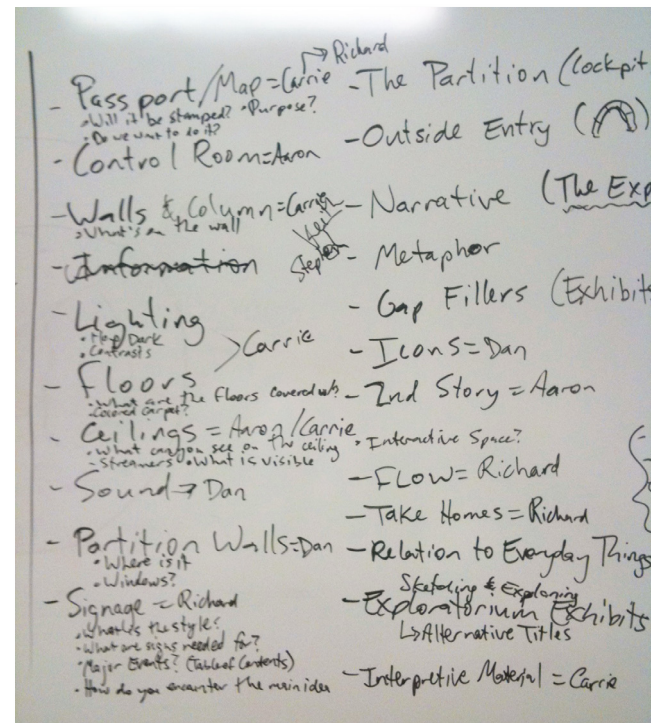 - Passport/Map = Carrie → Richard
• Will it be stamped? • Purpose?
• Do we want to do it?
- Control Room = Aaron
- Walls & Column = Carrie
• What's on the wall
- Information
- Lighting
• Dark
• Contrasts
> Carrie
- Floors
• What are the floors covered with?
• Colored Carpet?
- Ceilings = Aaron/Carrie
• What can you see on the ceiling
• Streamers • What is visible
- Sound → Dan
- Partition Walls = Dan
• Where is it
• Windows?
- Signage = Richard
• What is the style?
• What are signs needed for?
• Major Events? (Table of Contents)
• How do you encounter the main idea
- The Partition (Cockpit
- Outside Entry (
- Narrative (The Exp
- Metaphor
- Gap Fillers (Exhibits
- Icons = Dan
- 2nd Story = Aaron
• Interactive Space?
- Flow = Richard
- Take Homes = Richard
- Relation to Everyday Things
Sketching & Exploring
- Exploratorium Exhibits
↳ Alternative Titles
- Interpretive Material = Carrie